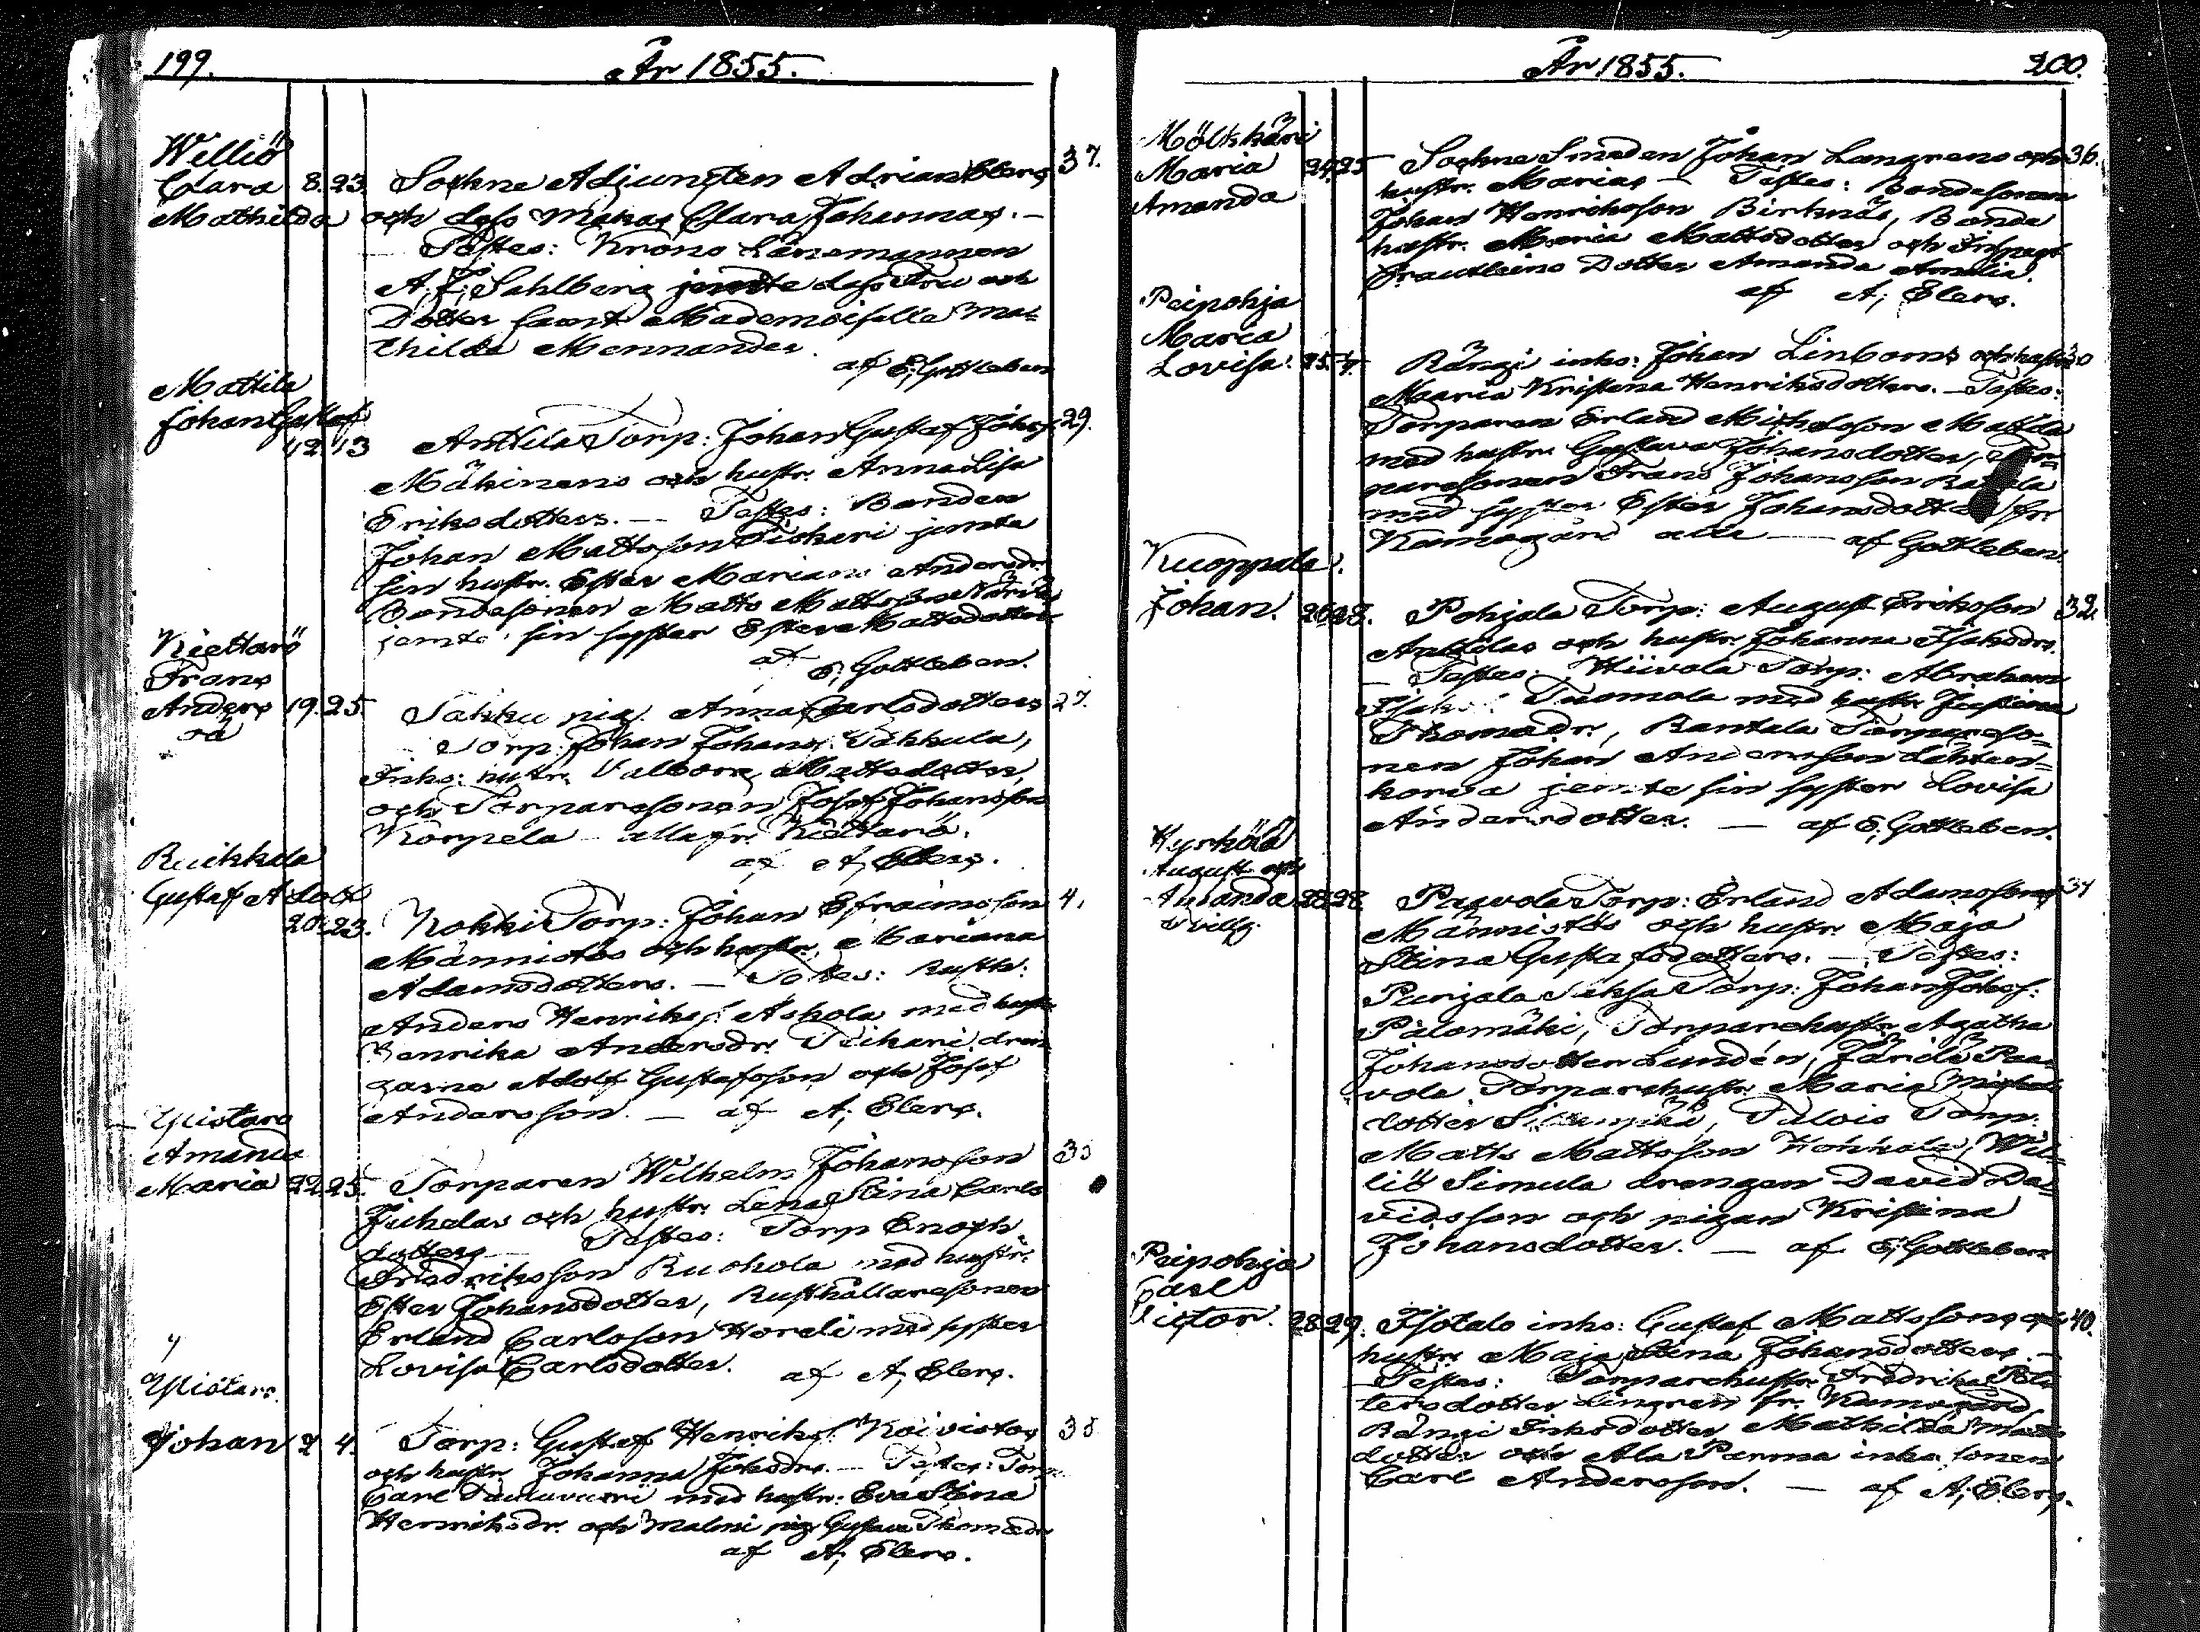 199.
År 1855.
Williö
Clara 8. 23. Sockne Adjuncten Adrian Elers 37.
Mathilda och dess Makas Clara Johannas. —
— Testes: Krono Länsmannen
A. F. Sahlberg jemte dess Fru och
Dotter samt Mademoiselle Mat-
thilda Mennander.
af E; Gottleben
Mattila
Johan Gustaf
12. 13 Anttila Torp: Johan Gustaf Johs: 29.
Mäkinens och hustr. Anna Lisa
Eriksdotters. — Testes: Bonden
Johan Mattsson Tiskari jemte
sin hustr. Ester Mariana Andersdr.
Bondesonen Matts Mattsson
jemte sin syster Ester Mattsdotter
af E; Gottleben.
Kiettarö
Frans
Anders 19. 25 Takku pig. Anna Carlsdotters 27.
oä
— Torp. Johan Johans: Takkula,
Inhs: hustr. Valborg Mattsdotter,
och Torparesonen Josef Johansson
Korpela — alla fr. Kiettarö.
af A; Elers.
Ruikkala
Gustaf Adolf
20. 23. Kokki Torp: Johan Efraimsson 4.
Männistös och hustr. Mariana
Adamsdotters. — Testes: Rusth:
Anders Henriks: Askola med hustr
Henrika Andersdr. Tiikari, dren-
garne Adolf Gustafsson och Josef
Andersson. — af A; Elers.
Ypistaro
Amanda
Maria 22. 25. Torparen Wilhelm Johansson 33
Juhelas och hustr. Lena Stina Carls
dotters — Testes: Torp Enoch
Fredriksson Ruohola med hustr:
Ester Johansdotter, Rusthållaresonen
Erland Carlsson Hordi med syster
Lovisa Carlsdotter. af A; Elers.
Ypistaro.
Johan 2 4. Torp: Gustaf Henriks: Koivistos 35
och hustr. Johanna Johsdrs. — Testes: Torp:
Carl Tauluvuori med hustr: Eva Stina
Henriksdr. och Malmi pig. Gustava Thomasdr
af A; Elers.
År 1855.
200.
Mölkhäri
Maria 24. 25 Sockne Smeden Johan Langrens och 36.
Amanda hustr. Marias — Testes: Bondesonen
Johan Henriksson Birknäs, Bonde
hustr. Maria Mattsdotter och Inspect
Dotter Amanda Amalia.
af A; Elers.
Peipohja
Maria
Lovisa. 25. 4. Rängi inhs: Johan Linboms och hustr. 30
Maria Kristina Henriksdotters. — Testes:
Torparen Erland Michelsson Mattila
med hustr. Gustava Johansdotter, Tor-
paresonen Frans Johansson
med syster Ester Johansdotter fr.
Kumogård alla — af Gottleben.
Kuoppala.
Johan. 26. 28. Pohjala Torp: August Eriksson 32.
Anttilas och hustr. Johanna Isaksdrs.
— Testes: Hiivola Torp: Abraham
Isaks: Tuomola med hustr. Justina
Thomasdr., Rantala Torpareso-
nen Johan Andersson Lähteen-
korva jemte sin syster Lovisa
Andersdotter. — af E; Gottleben.
Hyrkölä
August och
Amanda 28. 28. Paavola Torp: Erland Adamssons 34
tvillg.
Männistös och hustr. Maja
Stina Gustafsdotters. — Testes:
Punjala Torp: Johan Johs:
Palomäki, Torparehustr. Agatha
Johansdotter Lundén, Järilä Paa-
vola Torparehustr. Maria Michels
dotter, Talois Torp.
Matts Mattsson Hohkala, Wil-
liö Simula drengen David Da-
vidsson och pigan Kristina
Johansdotter. — af E; Gottleben
Peipohja
Carl
Victor. 28. 29. Isotalo inhs: Gustaf Mattssons och 40.
hustr. Maja Stina Johansdotters. —
— Testes: Torparehustr. Fredrika Pet-
tersdotter Lingren fr. Kumogård
Rängi Inhsdotter Mathilda Matts
dotter och Ala Parma inhs. sonen
Carl Andersson. — af A; Elers.